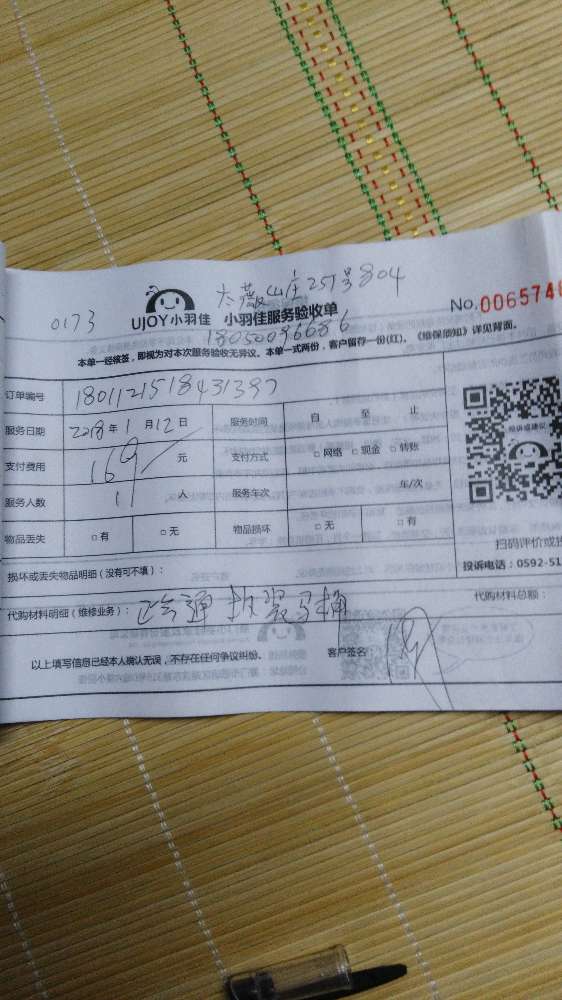 太薇山庄251号804
0173 UJOY小羽佳 小羽佳服务验收单 No.006574
18050096686
本单一经核签，即视为对本次服务验收无异议。本单一式两份，客户留存一份(红)。《维保须知》详见背面。
订单编号 180112151843139
服务日期 2018年1月12日 服务时间 自 至 止
支付费用 169 元 支付方式 □网络 □现金 □转账
服务人数 1 人 服务车次 年/次
物品丢失 □有 □无 物品损坏 □无 □有
投诉或建议
扫码评价或投
投诉电话：0592-51
损坏或丢失物品明细（没有可不填）：
代购材料明细（维修业务）： 疏通 马桶 代购材料总额：
以上填写信息已经本人确认无误，不存在任何争议纠纷。 客户签名：